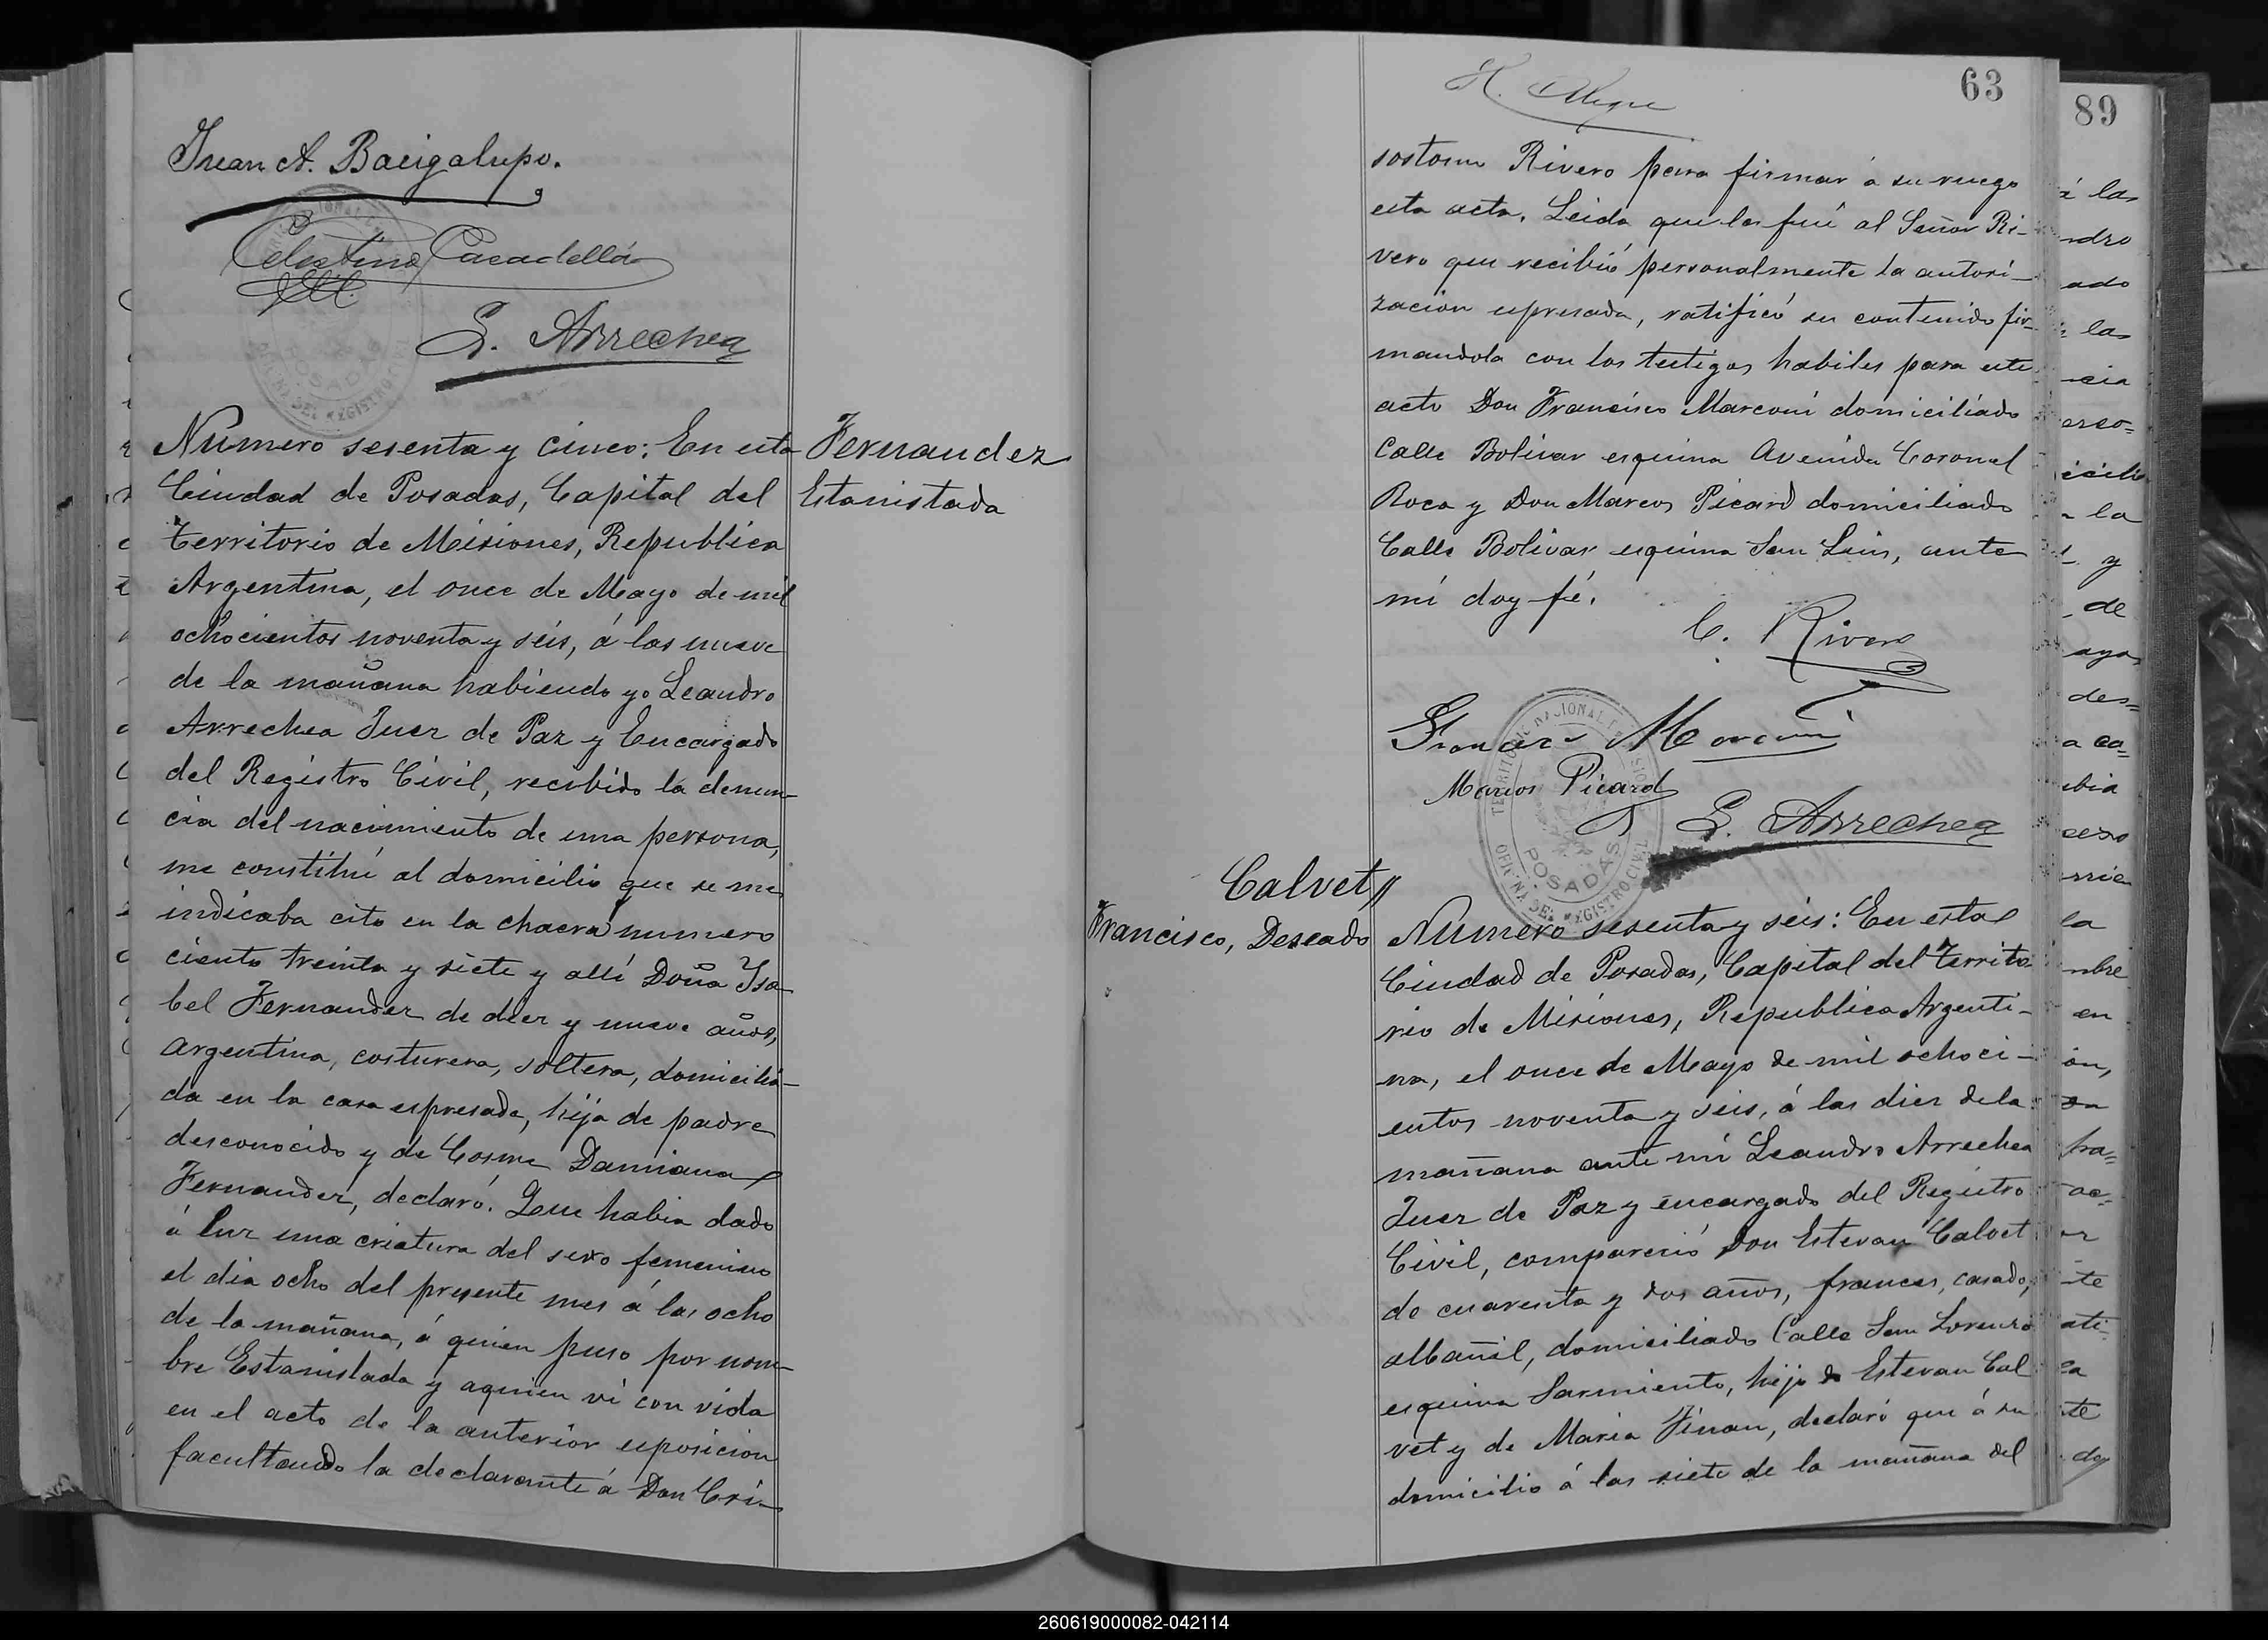 Juan A. Bacigalupo.
Celestino Casadellá
L. Arrechea
Fernandez
Estanislada
Número sesenta y cinco: En esta
Ciudad de Posadas, Capital del
Territorio de Misiones, Republica
Argentina, el once de Mayo de mil
ochocientos noventa y seis, á las nueve
de la mañana habiendo yo Leandro
Arrechea Juez de Paz y Encargado
del Registro Civil, recibido la denun-
cia del nacimiento de una persona,
me constituí al domicilio que se me
indicaba cito en la chacra numero
ciento treinta y siete y allí Doña Ysa-
bel Fernandez de diez y nueve años,
argentina, costurera, soltera, domicilia-
da en la casa espresada, hija de padre
desconocido y de Cosme Damiana
Fernandez, declaró. Que habia dado
á luz una criatura del sexo femenino
el dia ocho del presente mes á las ocho
de la mañana, á quien puso por nom-
bre Estanislada y aquien vi con vida
en el acto de la anterior esposicion
facultando la declarante á Don Cri-
63
H. Alegre
sostomo Rivero para firmar á su ruego
esta acta. Leida que les fué al Señor Ri-
vero que recibió personalmente la autori-
zacion espresada, ratificó su contenido fir-
mandola con los testigos habiles para este
acto Don Francisco Marconi domiciliado
Calle Bolivar esquina Avenida Coronel
Roca y Don Marcos Picard domiciliado
Calle Bolivar esquina San Luis, ante
mí doy fé.
C. Rivero
Francisco Marconi
Marcos Picard
L. Arrechea
TERRITORIO NACIONAL DE MISIONES
POSADAS
OFICINA DEL REGISTRO CIVIL
Calvet
Francisco, Deseado
Número sesenta y seis: En esta
Ciudad de Posadas, Capital del Territo
rio de Misiones, Republica Argenti-
na, el once de Mayo de mil ochoci-
entos noventa y seis, á las diez de la
mañana ante mí Leandro Arrechea
Juez de Paz y encargado del Registro
Civil, compareció Don Estevan Calvet
de cuarenta y dos años, frances, casado,
albañil, domiciliado Calle San Lorenzo
esquina Sarmiento, hijo de Estevan Cal
vet y de Maria Finan, declaró que á su
domicilio á las siete de la mañana del
89
á las
ndro
ado
las
ncia
erso=
icilio
la
y
de
ayo
des=
a ca=
ibia
sexo
la
mbre
en
on,
fra=
ac=
te
ati
ca
te
doy
260619000082-042114